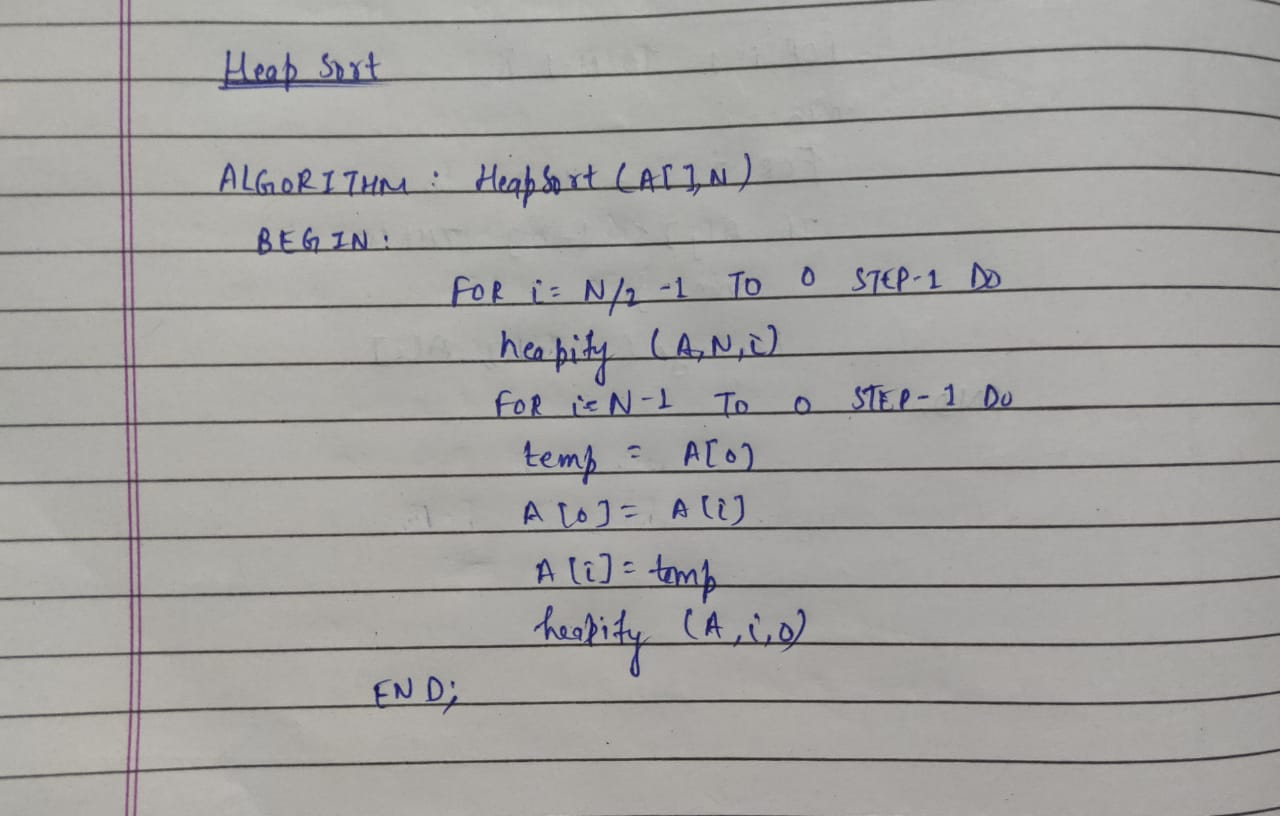 Heap Sort
ALGORITHM : HeapSort (A[], N)
BEGIN :
FOR i = N/2 -1 TO 0 STEP-1 DO
heapify (A, N, i)
FOR i = N-1 TO 0 STEP-1 DO
temp = A[0]
A[0] = A[i]
A[i] = temp
heapify (A, i, 0)
END;